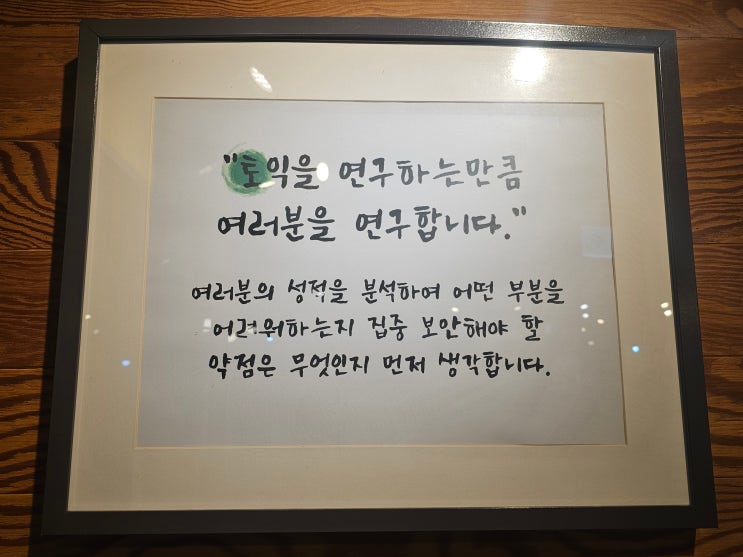 "토익을 연구하는만큼
여러분을 연구합니다."
여러분의 성적을 분석하여 어떤 부분을
어려워하는지 집중 보안해야 할
약점은 무엇인지 먼저 생각합니다.